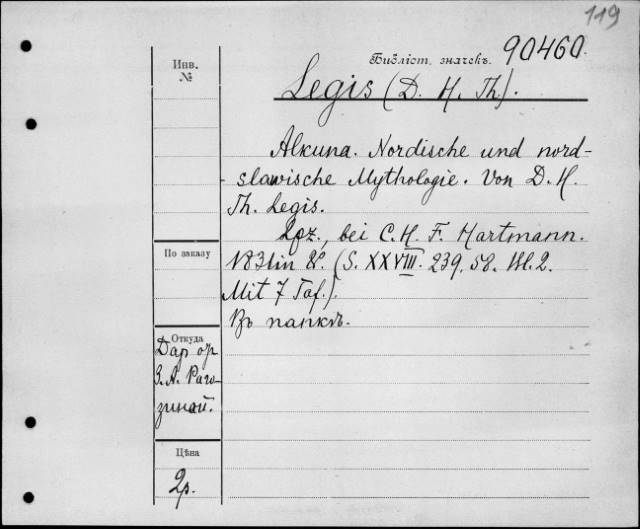 119
Инв.
№
Библіот. значекъ. 90460.
Legis (D. H. Th).
Alkuna. Nordische und nord-
slawische Mythologie. Von D. H.
Th. Legis.
Lpz., bei C. H. F. Hartmann.
1831 in 8°. (S. XXVIII. 239. 58. Bl. 2.
Mit 7 Taf.).
Въ папкѣ.
По заказу
Откуда
Даръ
З. А. Раго-
зиной.
Цѣна
2р.